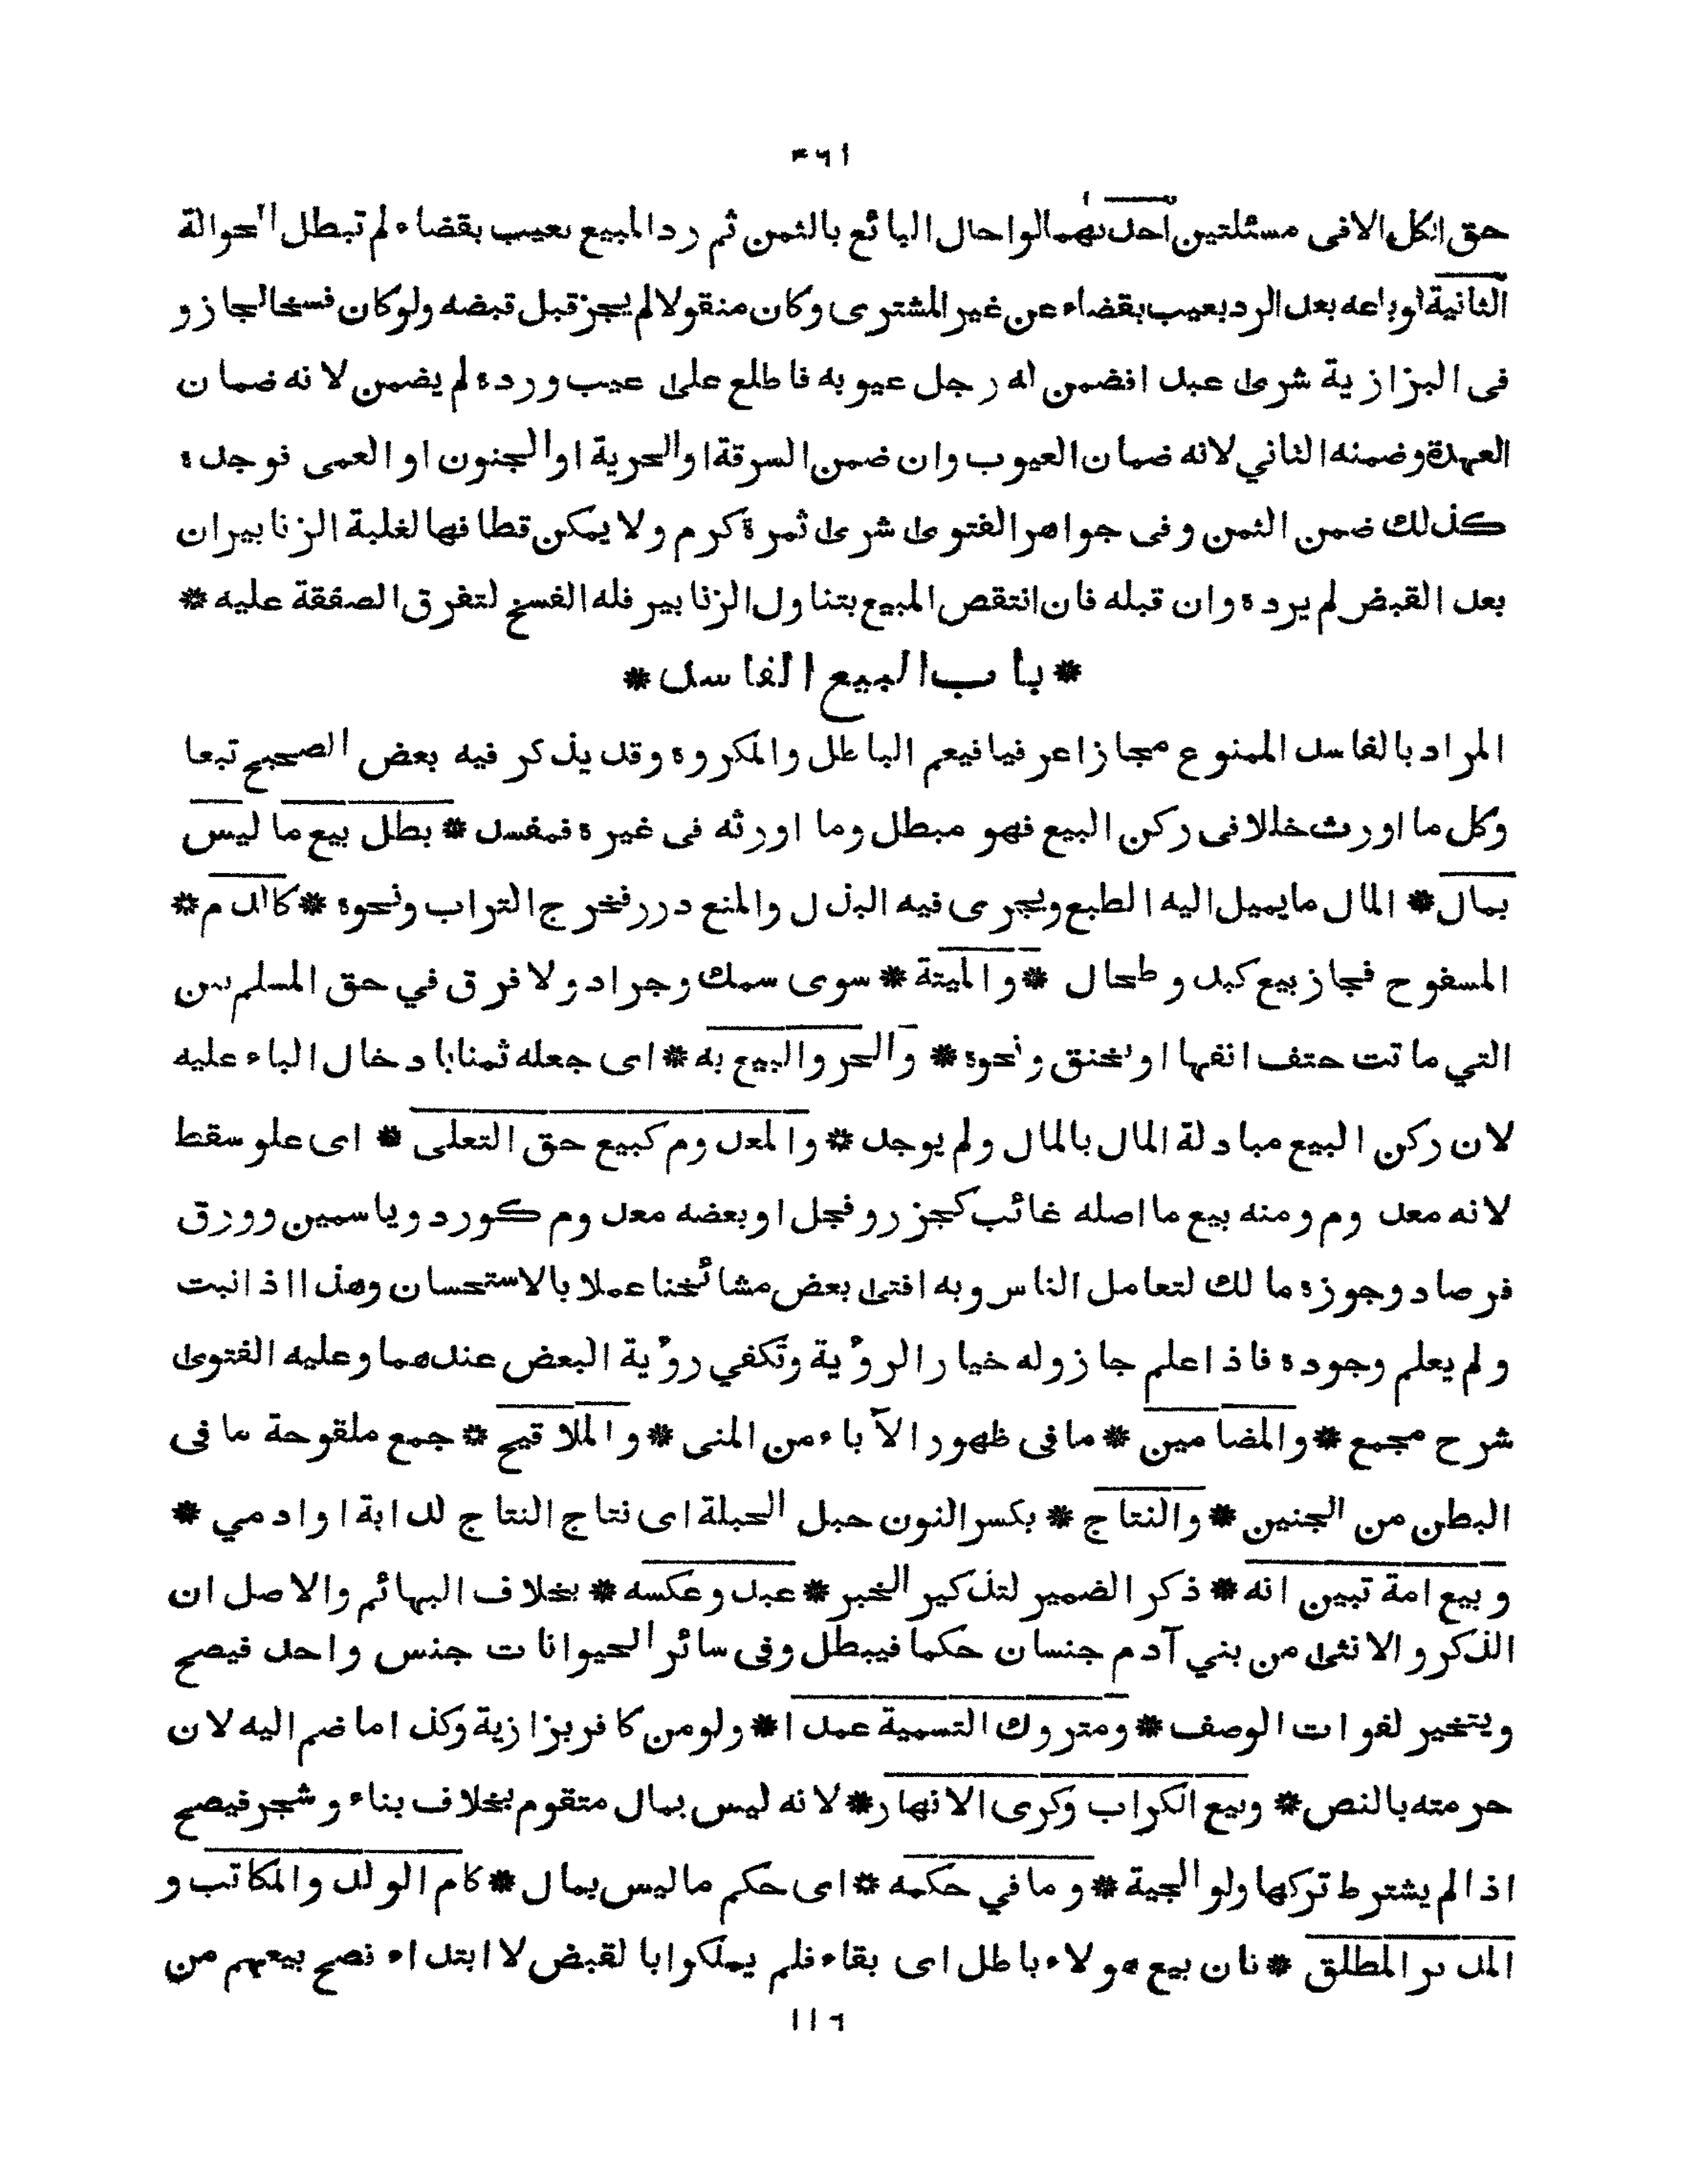 ۴۶۱
حق الكل الا فى مسئلتين احدىهما لو احال البائع بالثمن ثم رد المبيع بعيب بقضاء لم تبطل الحوالة
الثانية لو باعه بعد الرد بعيب بقضاء عن غير المشترى وكان منقولا لم يجز قبل قبضه ولو كان فسخا لجاز و
فى البزازية شرى عبدا فضمن له رجل عيوبه فاطلع على عيب ورده لم يضمن لانه ضمان
العهدة وضمنه الثاني لانه ضمان العيوب وان ضمن السرقة او الحرية او الجنون او العمى فوجده
كذلك ضمن الثمن وفى جواهر الفتوى شرى ثمرة كرم ولا يمكن قطافها لغلبة الزنابير ان
بعد القبض لم يرده وان قبله فان انتقص المبيع بتناول الزنابير فله الفسخ لتفرق الصفقة عليه *
* باب البيع الفاسد *
المراد بالفاسد الممنوع مجازا عرفيا فيعم الباطل والمكروه وقد يذكر فيه بعض الصحيح تبعا
وكل ما اورث خللا فى ركن البيع فهو مبطل وما اورثه فى غيره فمفسد * بطل بيع ما ليس
بمال * المال ما يميل اليه الطبع ويجرى فيه البذل والمنع درر فخرج التراب ونحوه * كالدم *
المسفوح فجاز بيع كبد وطحال * والميتة * سوى سمك وجراد ولا فرق في حق المسلم بين
التي ماتت حتف انفها او بخنق ونحوه * والحر والبيع به * اى جعله ثمنا بادخال الباء عليه
لان ركن البيع مبادلة المال بالمال ولم يوجد * والمعدوم كبيع حق التعلى * اى علو سقط
لانه معدوم ومنه بيع ما اصله غائب كجزر وفجل او بعضه معدوم كورد وياسمين وورق
فرصاد وجوزه مالك لتعامل الناس وبه افتى بعض مشائخنا عملا بالاستحسان وهذا اذا نبت
ولم يعلم وجوده فاذا علم جاز وله خيار الرؤية وتكفي رؤية البعض عندهما وعليه الفتوى
شرح مجمع * والمضامين * ما فى ظهور الآباء من المنى * والملاقيح * جمع ملقوحة ما فى
البطن من الجنين * والنتاج * بكسر النون حبل الحبلة اى نتاج النتاج لدابة او ادمي *
وبيع امة تبين انه * ذكر الضمير لتذكير الخبر * عبد وعكسه * بخلاف البهائم والاصل ان
الذكر والانثى من بني آدم جنسان حكما فيبطل وفى سائر الحيوانات جنس واحد فيصح
ويتخير لفوات الوصف * ومتروك التسمية عمدا * ولو من كافر بزازية وكذا ما ضم اليه لان
حرمته بالنص * وبيع الكراب وكرى الانهار * لانه ليس بمال متقوم بخلاف بناء وشجر فيصح
اذا لم يشترط تركها ولوالجية * وما في حكمه * اى حكم ما ليس بمال * كام الولد والمكاتب و
المدبر المطلق * فان بيع هولاء باطل اى بقاء فلم يملكوا بالقبض لا ابتداء فصح بيعهم من
۱۱۶